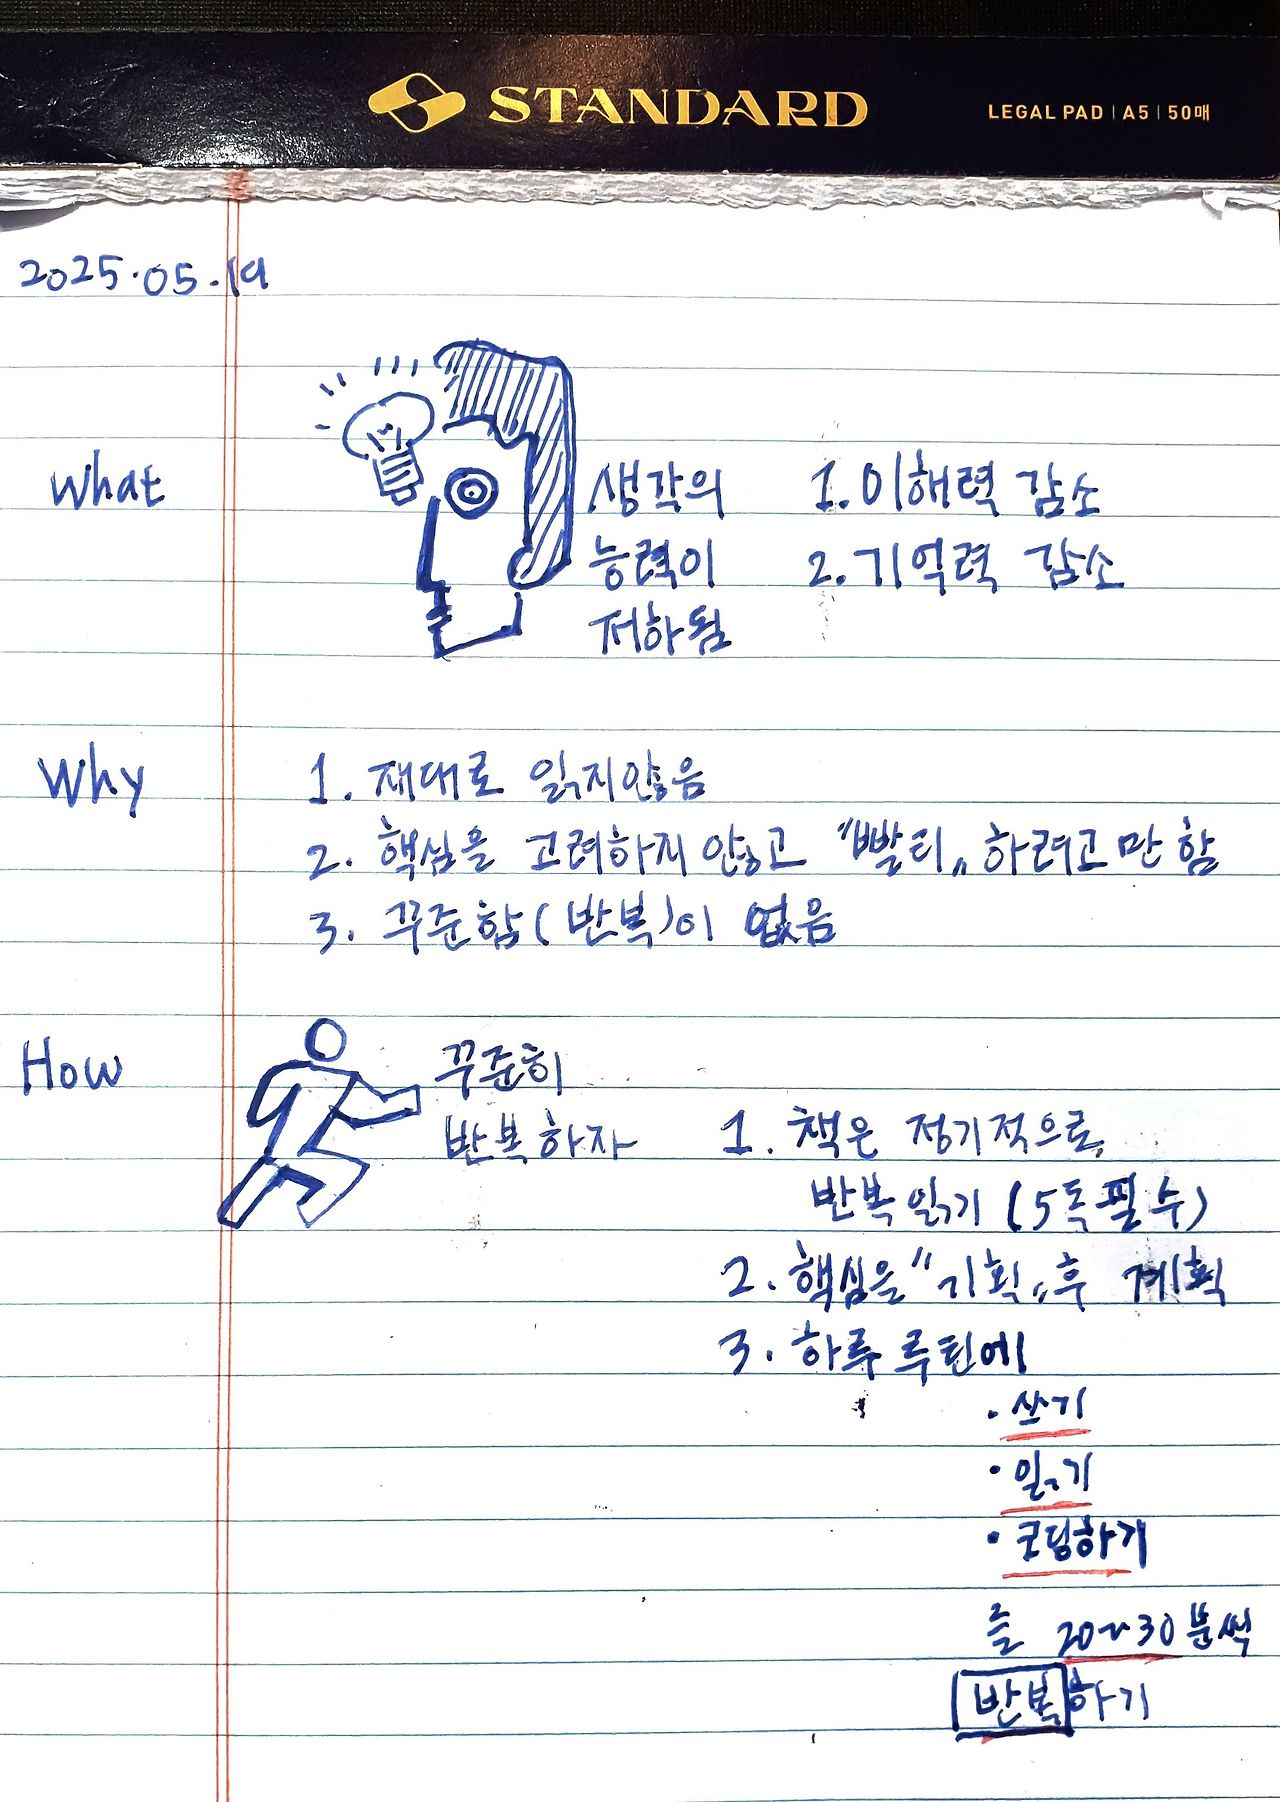 STANDARD
LEGAL PAD | A5 | 50매
2025.05.19
What
생각의
능력이
저하됨
1. 이해력 감소
2. 기억력 감소
Why
1. 재대로 읽지않음
2. 핵심을 고려하지 않고 "빨리" 하려고만 함
3. 꾸준함(반복)이 없음
How
꾸준히
반복하자
1. 책은 정기적으로
반복 읽기 (5독 필수)
2. 핵심을 "기획" 후 계획
3. 하루 루틴에
· 쓰기
· 읽기
· 코딩하기
를 20~30분씩
반복하기